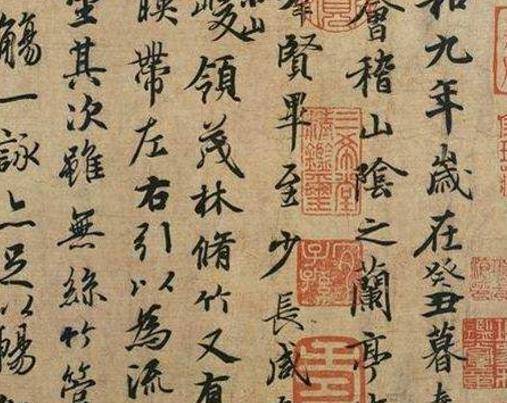 和九年歲在癸丑暮
會稽山陰之蘭亭
羣賢畢至少長咸
山
峻領茂林脩竹又有
暎帶左右引以為流
坐其次雖無絲竹管
觴一詠亦足以暢
三希堂精鑑璽
宜子孫